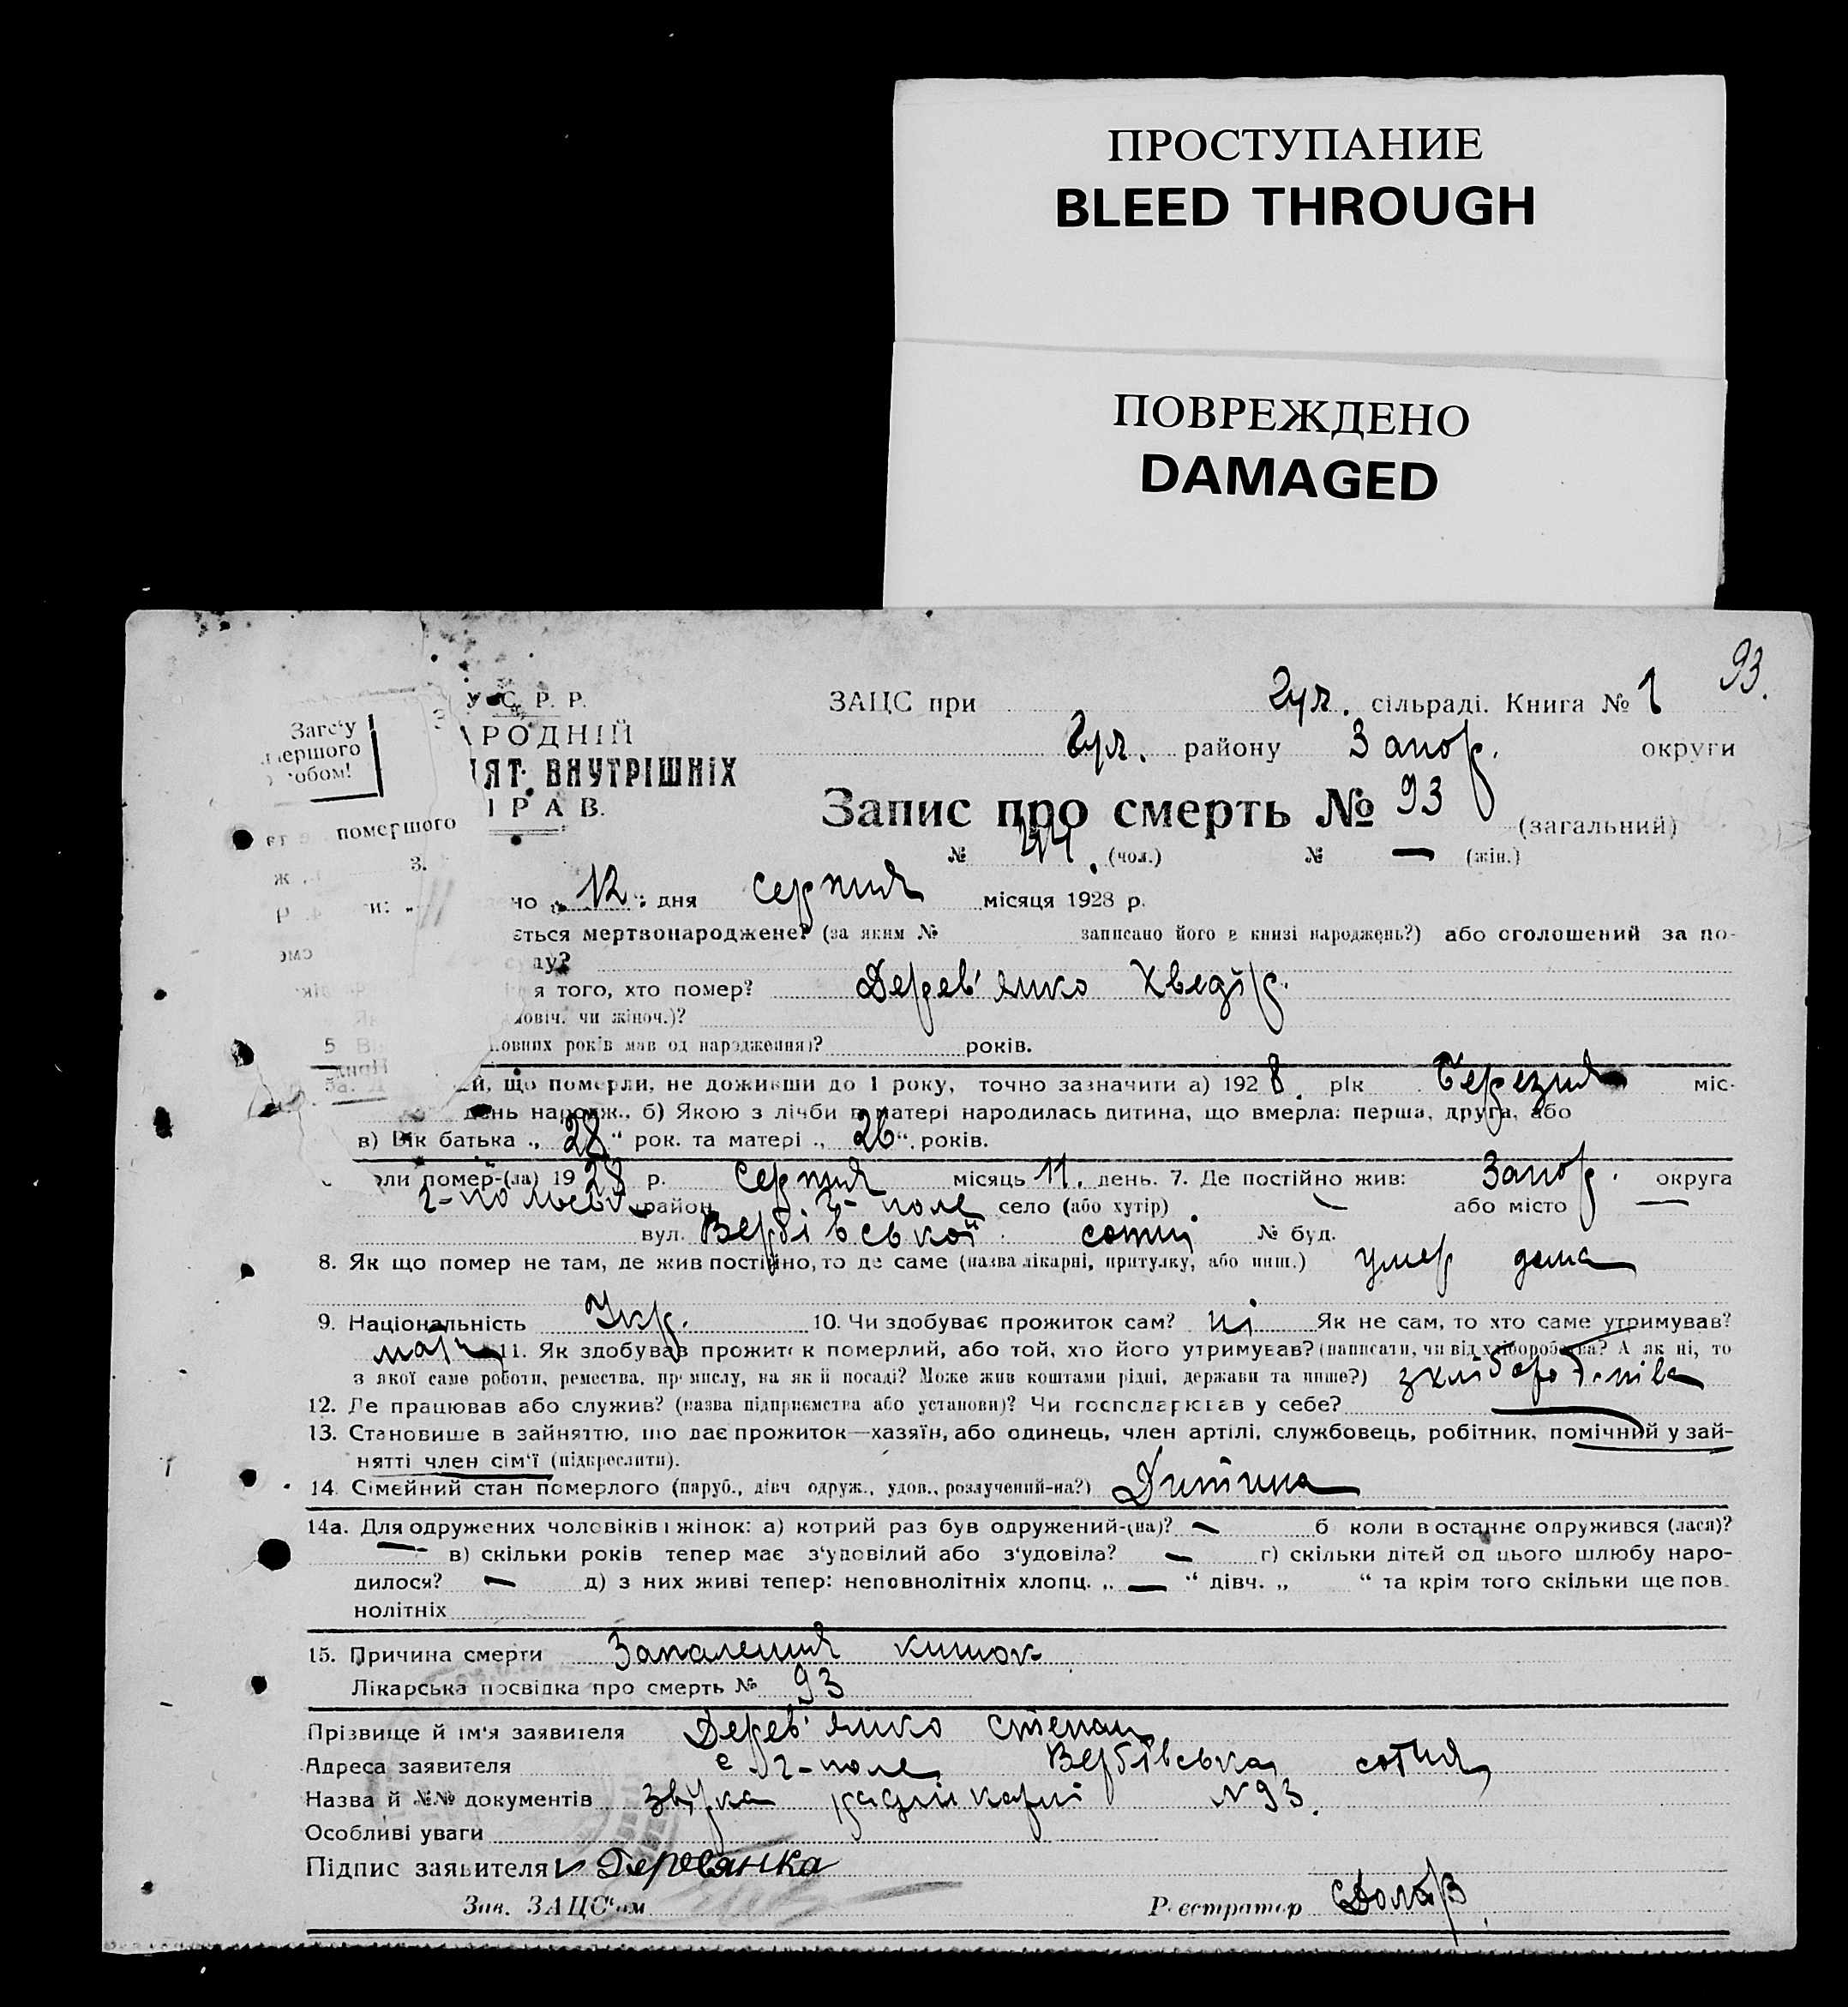 ПРОСТУПАНИЕ
BLEED THROUGH
ПОВРЕЖДЕНО
DAMAGED
93.
У. С. Р. Р.
ЗАЦС при Гул. сільраді. Книга № 1
АРОДНІЙ
Гул. району Запор. округи
ЯТ. ВНУТРІШНІХ
ПРАВ.
Загс'у
першого
собом!
Запис про смерть № 93 (загальний)
№ (чол.) № — (жін.)
помершого
3.
но „12" дня серпня місяця 1928 р.
ється мертвонароджене? (за яким № записано його в книзі народжень?) або оголошений за по-
ду?
я того, хто помер? Дерев'янко Хведір.
ловіч. чи жіноч.)?
повних років мав од народження)? років.
ей, що померли, не доживши до 1 року, точно зазначити а) 1928. рік Березня міс.
день народж., б) Якою з лічби в матері народилась дитина, що вмерла: перша, друга, або
в) Вік батька „28" рок. та матері „26" років.
оли помер-(ла) 1928 р. Серпня місяць 11. день. 7. Де постійно жив: Запор. округа
г-польськ район г-поле село (або хутір) або місто —
вул. Вербівської сотні № буд.
8. Як що помер не там, де жив постійно, то де саме (назва лікарні, притулку, або инш.) умер дома
9. Національність Укр. 10. Чи здобуває прожиток сам? ні Як не сам, то хто саме утримував?
мати 11. Як здобував прожиток померлий, або той, хто його утримував? (написати, чи від хліборобства? А як ні, то
з якої саме роботи, ремества, промислу, на якій посаді? Може жив коштами рідні, держави та инше?) з хліборобства
12. Де працював або служив? (назва підприємства або установи)? Чи господарював у себе?
13. Становище в зайняттю, що дає прожиток—хазяїн, або одинець, член артілі, службовець, робітник, помічний у зай-
нятті член сім'ї (підкреслити).
14. Сімейний стан померлого (паруб., дівч. одруж., удов., розлучений-на?) Дитина
14а. Для одружених чоловіків і жінок: а) котрий раз був одружений-(на)? — б коли востаннє одружився (лася)?
— в) скільки років тепер має з'удовілий або з'удовіла? — г) скільки дітей од цього шлюбу наро-
дилося? — д) з них живі тепер: неповнолітніх хлопц. „ — " дівч. „ " та крім того скільки ще пов-
нолітніх
15. Причина смерти Запалення кишок
Лікарська посвідка про смерть № 93
Прізвище й ім'я заявителя Дерев'янко Степан
Адреса заявителя с г-поле, Вербівська сотня,
Назва й №№ документів N 93.
Особливі уваги
Підпис заявителя Деревянка
Зав. ЗАЦС'ом Реєстратор